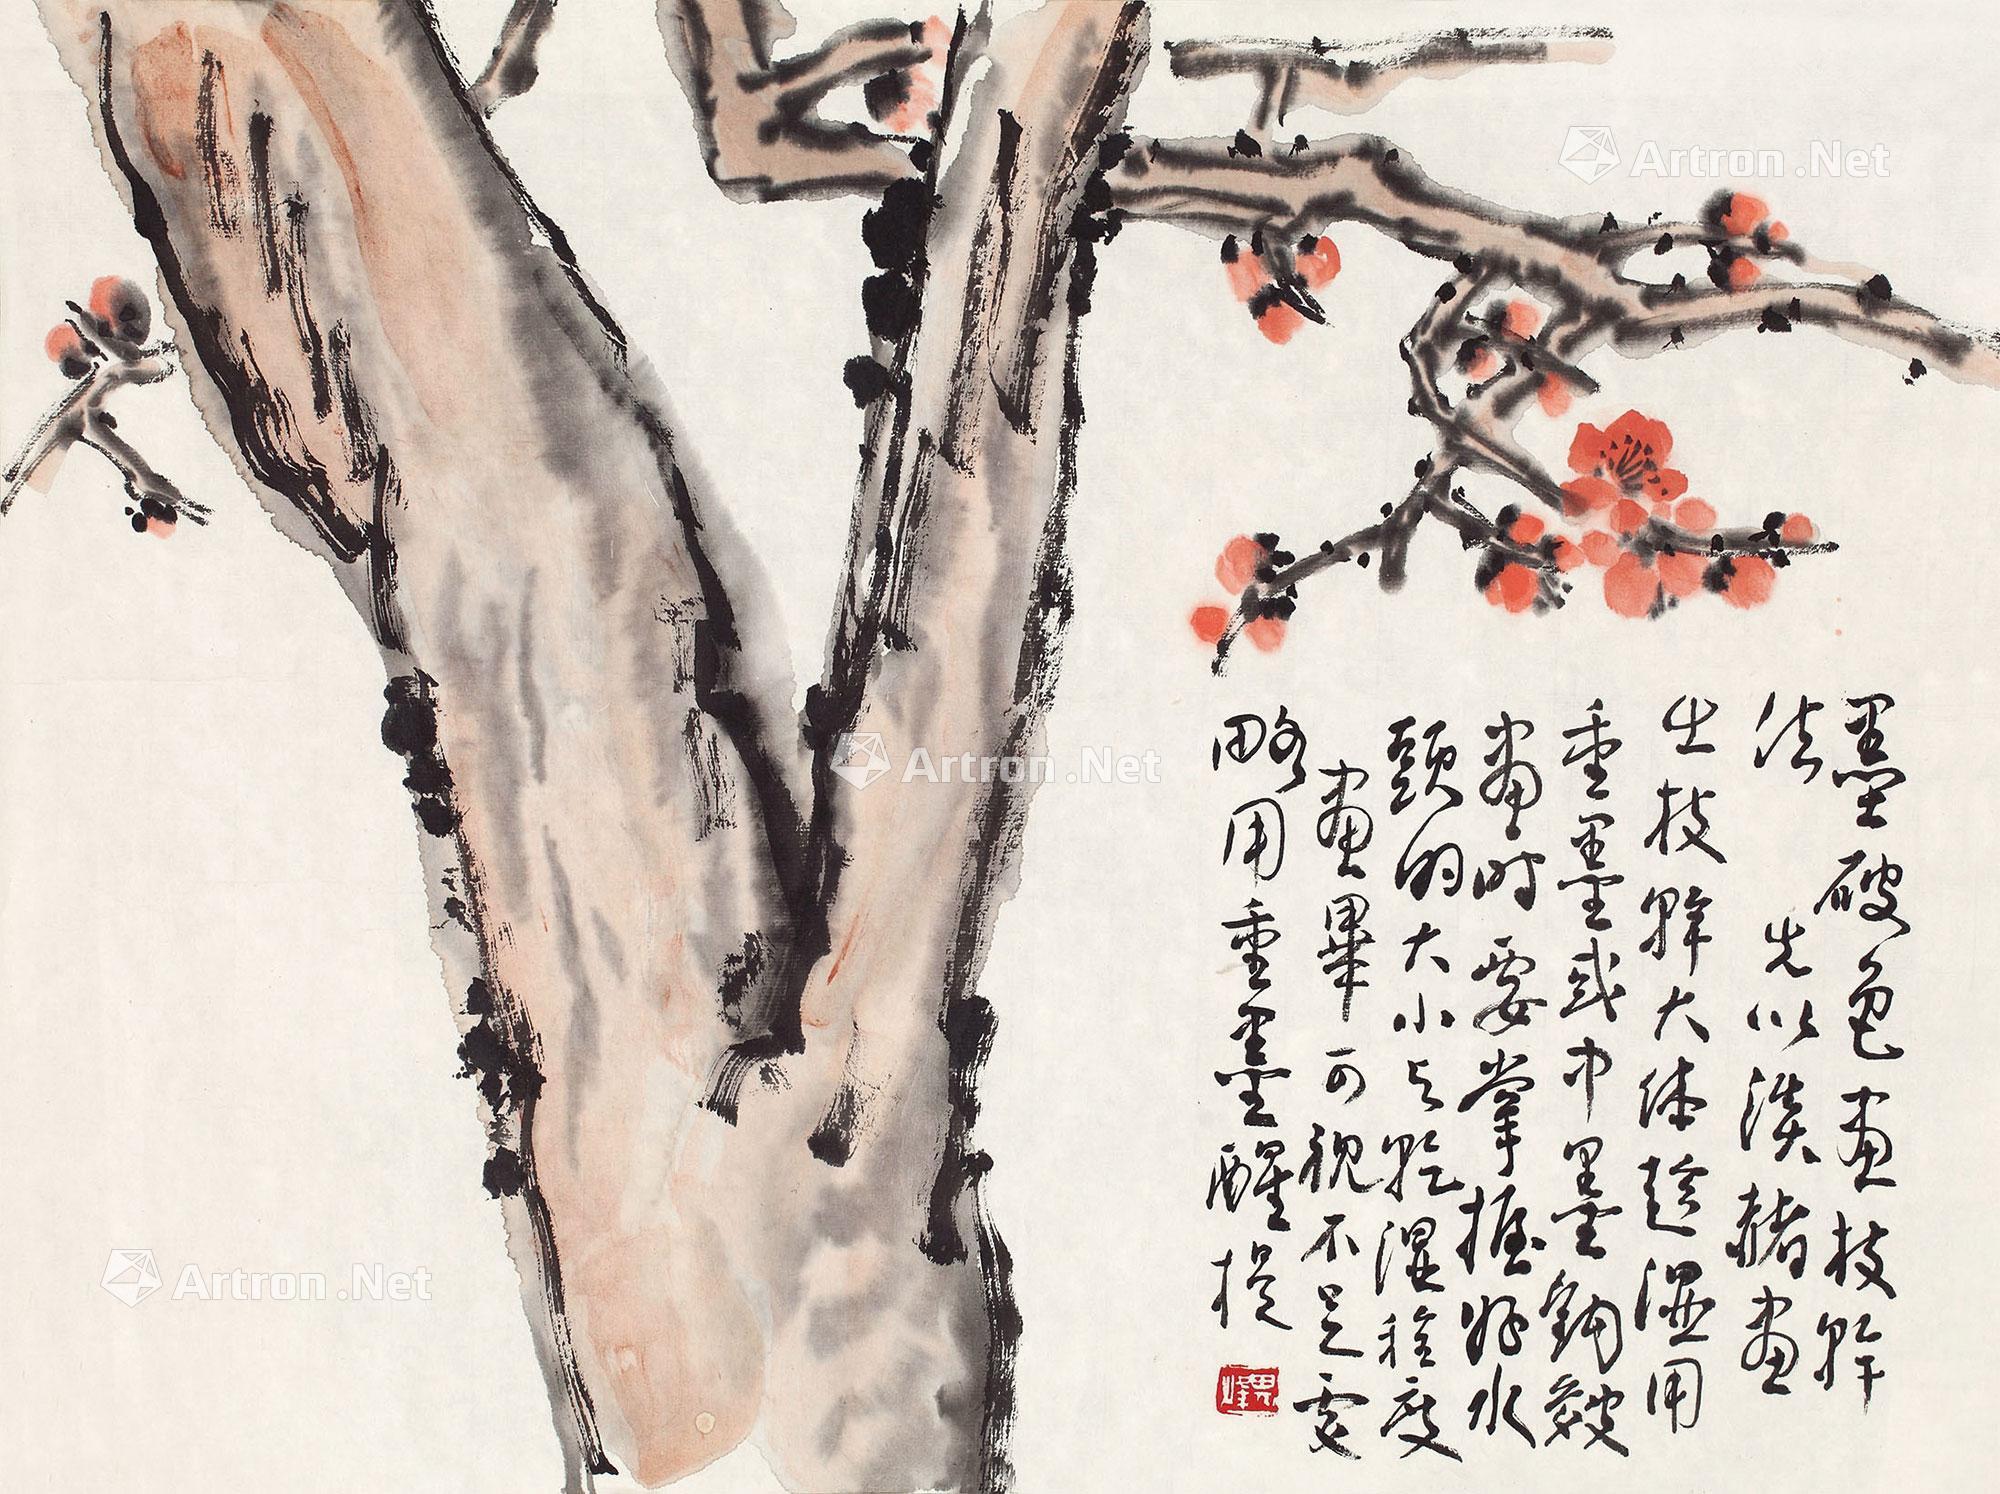 墨破色画枝幹
法 先以淡赭画
出枝幹大体趁濕用
重墨或中墨鈎皴
画时要掌握好水
頭的大小与乾濕程度
画畢可視不足處
略用重墨醒提
Artron.Net
Artron.Net
Artron.Net